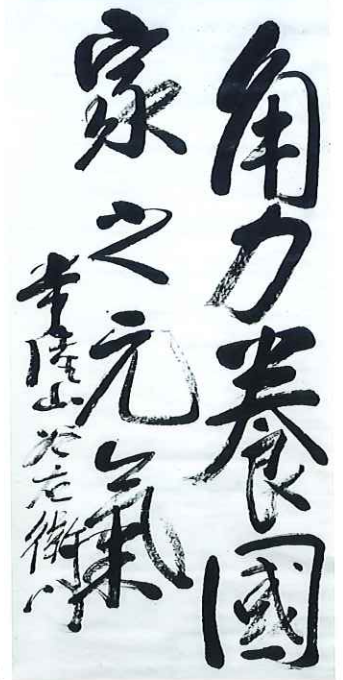 角力養國
家之元氣
常陸山谷右衛門